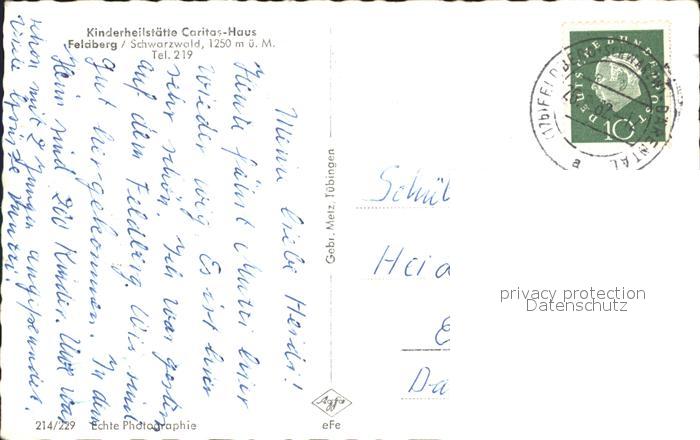 Kinderheilstätte Caritas-Haus
Feldberg / Schwarzwald, 1250 m ü. M.
Tel. 219
Meine liebe Heidi!
Heute fährt Mutti hier
wieder weg. Es ist hier
sehr schön. Ich war gestern
auf dem Feldberg. Wir sind
gut hergekommen. In dem
Heim sind 200 Kinder.
schon mit 2 Jungen angefreundet.
Viele Grüsse
214/229 Echte Photographie
Gebr. Metz, Tübingen
Agfa
eFe
DEUTSCHE BUNDESPOST
10
(17b) FELDBERG (SCHWARZW)
BÄRENTAL
a
Schül
Heid
E
Da
privacy protection
Datenschutz